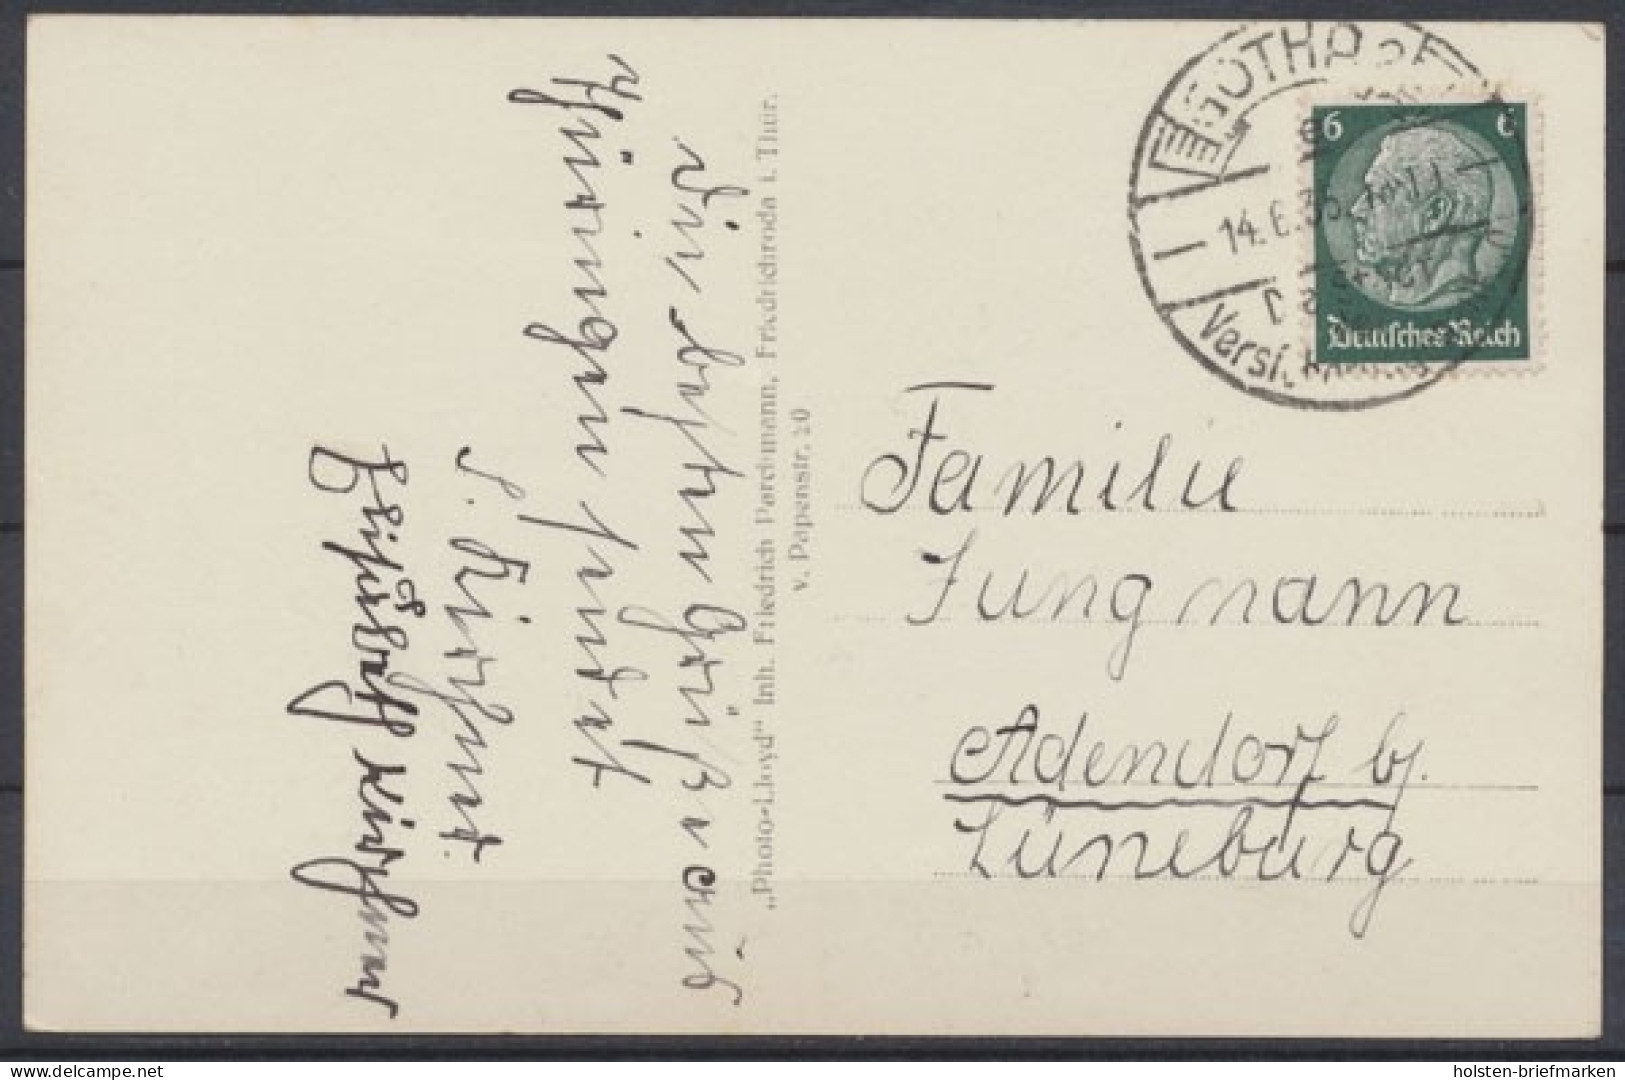 Die besten Grüße aus
Thüringen sendet
Kirchner
GOTHA
14.6.
6
6
Deutsches Reich
"Photo-Lloyd" Inh. Friedrich Parchmann, Friedrichroda i. Thür.
v. Papenstr. 20
Familie
Jungmann
Adendorf b/.
Lüneburg
delcampe.net
holsten-briefmarken